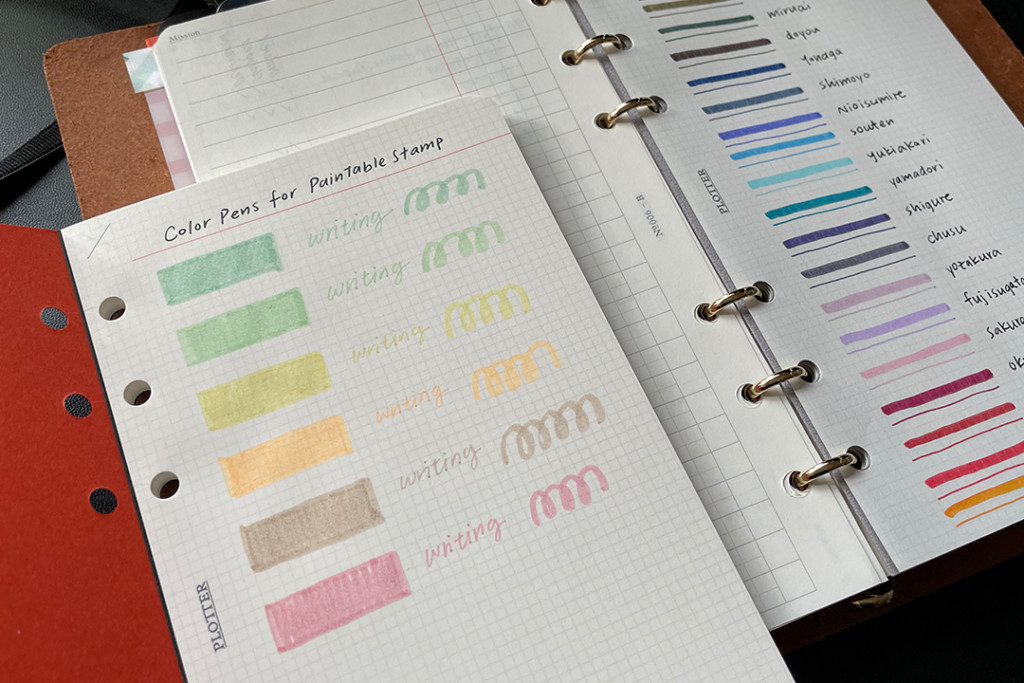 Mission
Color Pens for Paintable Stamp
writing
writing
writing
writing
writing
writing
PLOTTER
PLOTTER
miruai
doyou
Yonaga
shimoyo
Nioisumire
souten
yukiakari
yamadori
shigure
chusu
yozakura
fujisugata
sakura